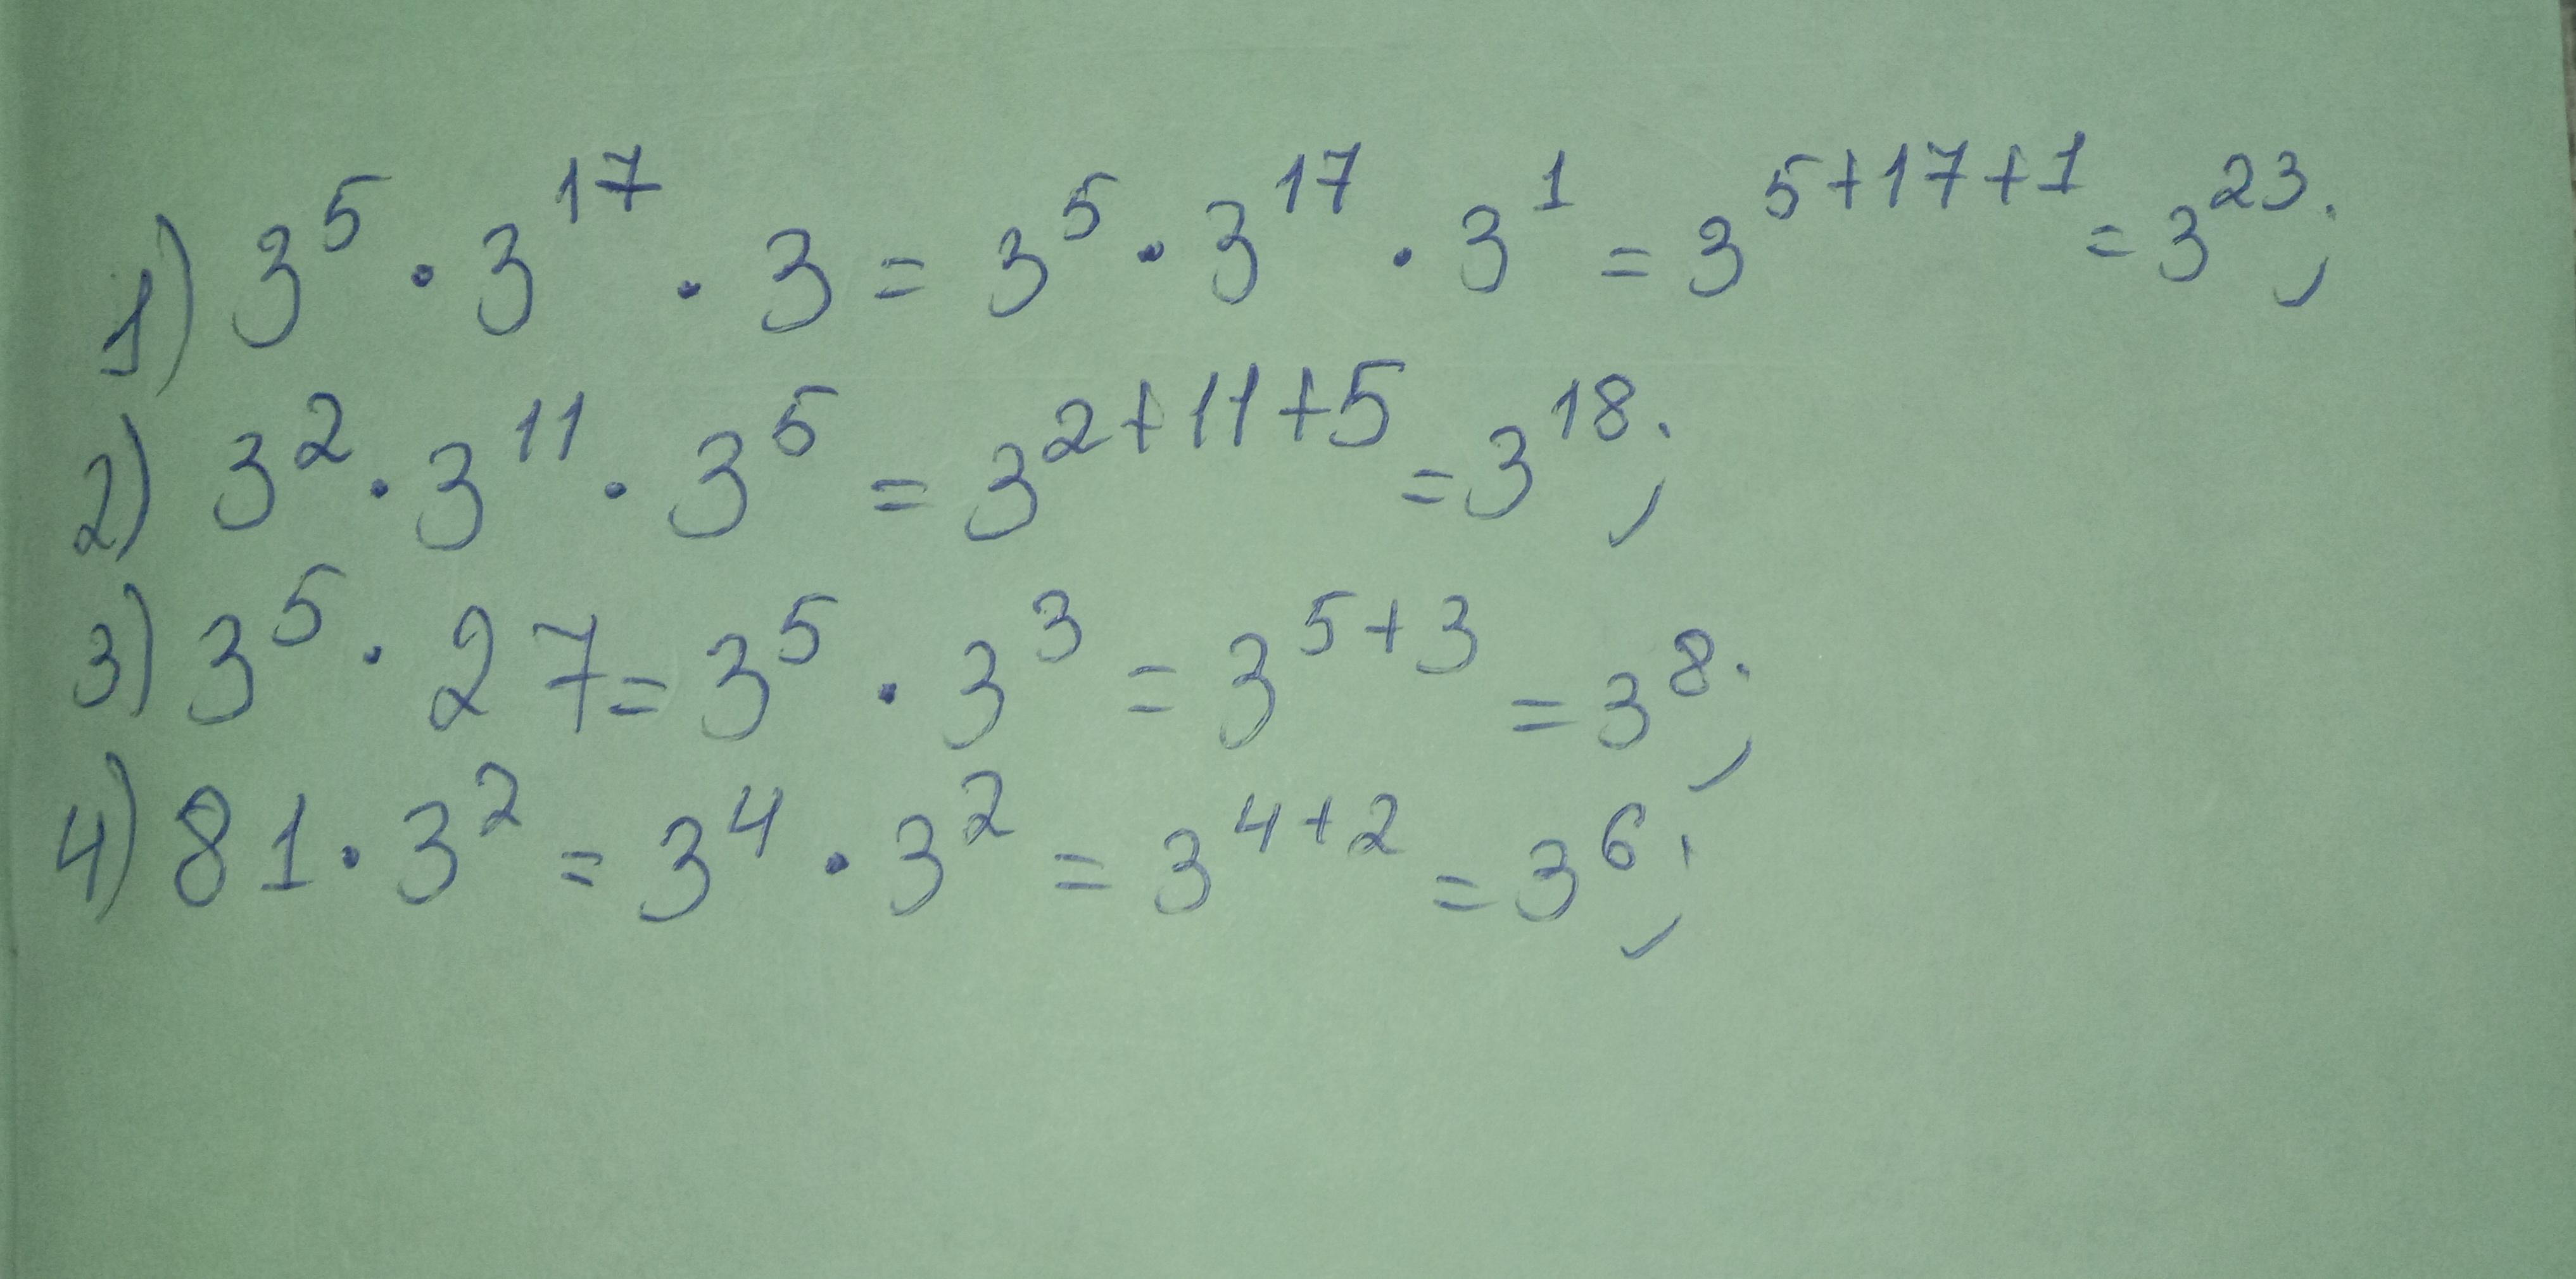 1) 3⁵ · 3¹⁷ · 3 = 3⁵ · 3¹⁷ · 3¹ = 3⁵⁺¹⁷⁺¹ = 3²³;
2) 3² · 3¹¹ · 3⁵ = 3²⁺¹¹⁺⁵ = 3¹⁸;
3) 3⁵ · 27 = 3⁵ · 3³ = 3⁵⁺³ = 3⁸;
4) 81 · 3² = 3⁴ · 3² = 3⁴⁺² = 3⁶;